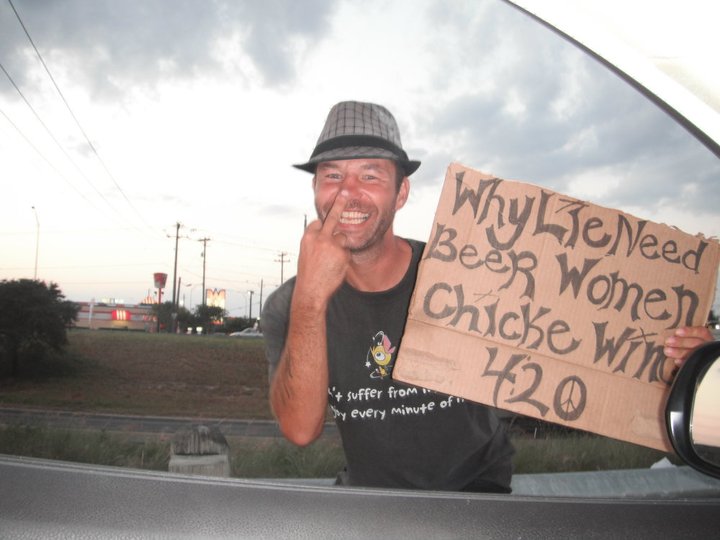 Why LIE Need
BEER Women
Chicke Win
420
suffer from
every minute of